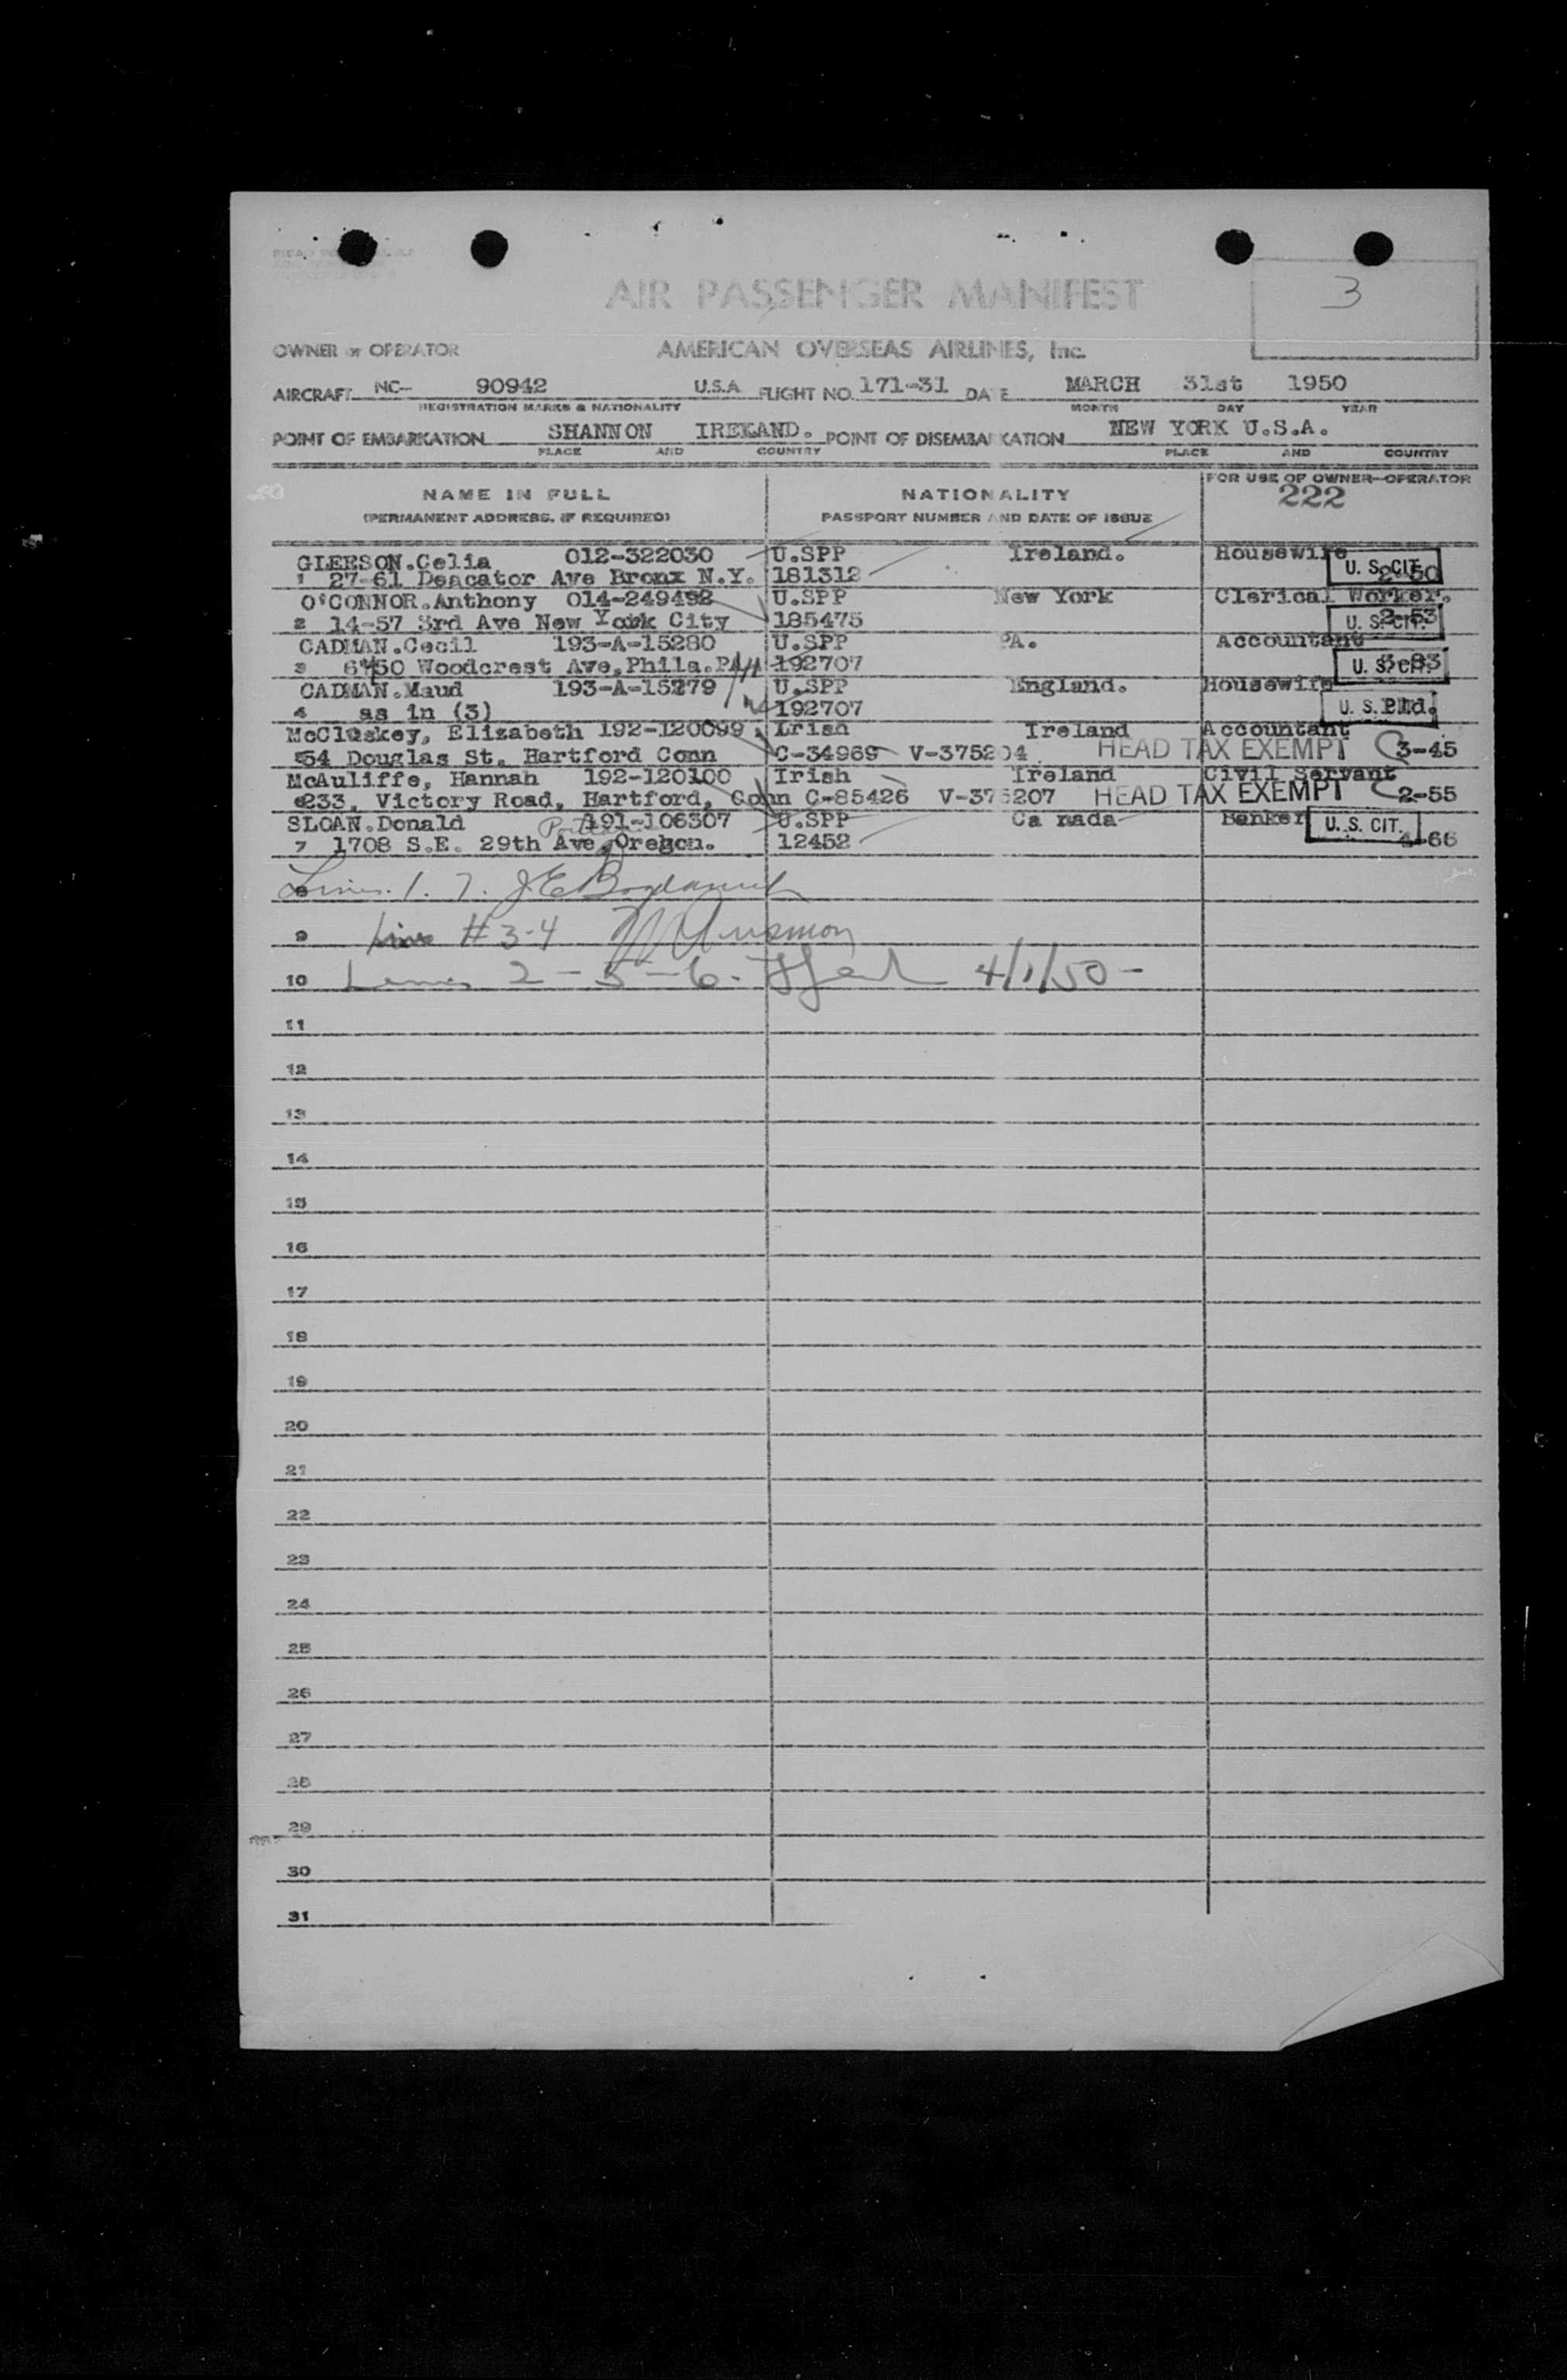 3
AIR PASSENGER MANIFEST
OWNER or OPERATOR AMERICAN OVERSEAS AIRLINES, Inc.
AIRCRAFT NC- 90942 U.S.A FLIGHT NO. 171-31 DATE MARCH 31st 1950
REGISTRATION MARKS & NATIONALITY MONTH DAY YEAR
POINT OF EMBARKATION SHANNON IRELAND. POINT OF DISEMBARKATION NEW YORK U.S.A.
PLACE AND COUNTRY PLACE AND COUNTRY
NAME IN FULL NATIONALITY FOR USE OF OWNER-OPERATOR
(PERMANENT ADDRESS, IF REQUIRED) PASSPORT NUMBER AND DATE OF ISSUE 222
GLEESON.Celia 012-322030 U.SPP Ireland. Housewife
1 27-61 Deacator Ave Bronx N.Y. 181312 U. S. CIT. 2-50
O'CONNOR.Anthony 014-249492 U.SPP New York Clerical Worker.
2 14-57 3rd Ave New York City 185475 U. S. CIT. 2-53
CADMAN.Cecil 193-A-15280 U.SPP PA. Accountant
3 6450 Woodcrest Ave.Phila.PA 192707 U. S. CIT. 3-83
CADMAN.Maud 193-A-15279 U.SPP England. Housewife
4 as in (3) 192707 U. S.
McCluskey, Elizabeth 192-120099 Irish Ireland Accountant
5 54 Douglas St. Hartford Conn C-34969 V-375204 HEAD TAX EXEMPT 3-45
McAuliffe, Hannah 192-120100 Irish Ireland Civil Servant
6 233, Victory Road, Hartford, Conn C-85426 V-375207 HEAD TAX EXEMPT 2-55
SLOAN.Donald 191-106307 U.SPP Ca nada Banker
7 1708 S.E. 29th Ave Oregon. 12452 U. S. CIT. 4-66
8 Lines. 1. 7.
9 Line #3-4
10 Lines 2-5-6. 4/1/50-
11
12
13
14
15
16
17
18
19
20
21
22
23
24
25
26
27
28
29
30
31